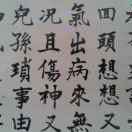 回頭想想又
氣出病來無
况且傷神又
兒孫瑣事由